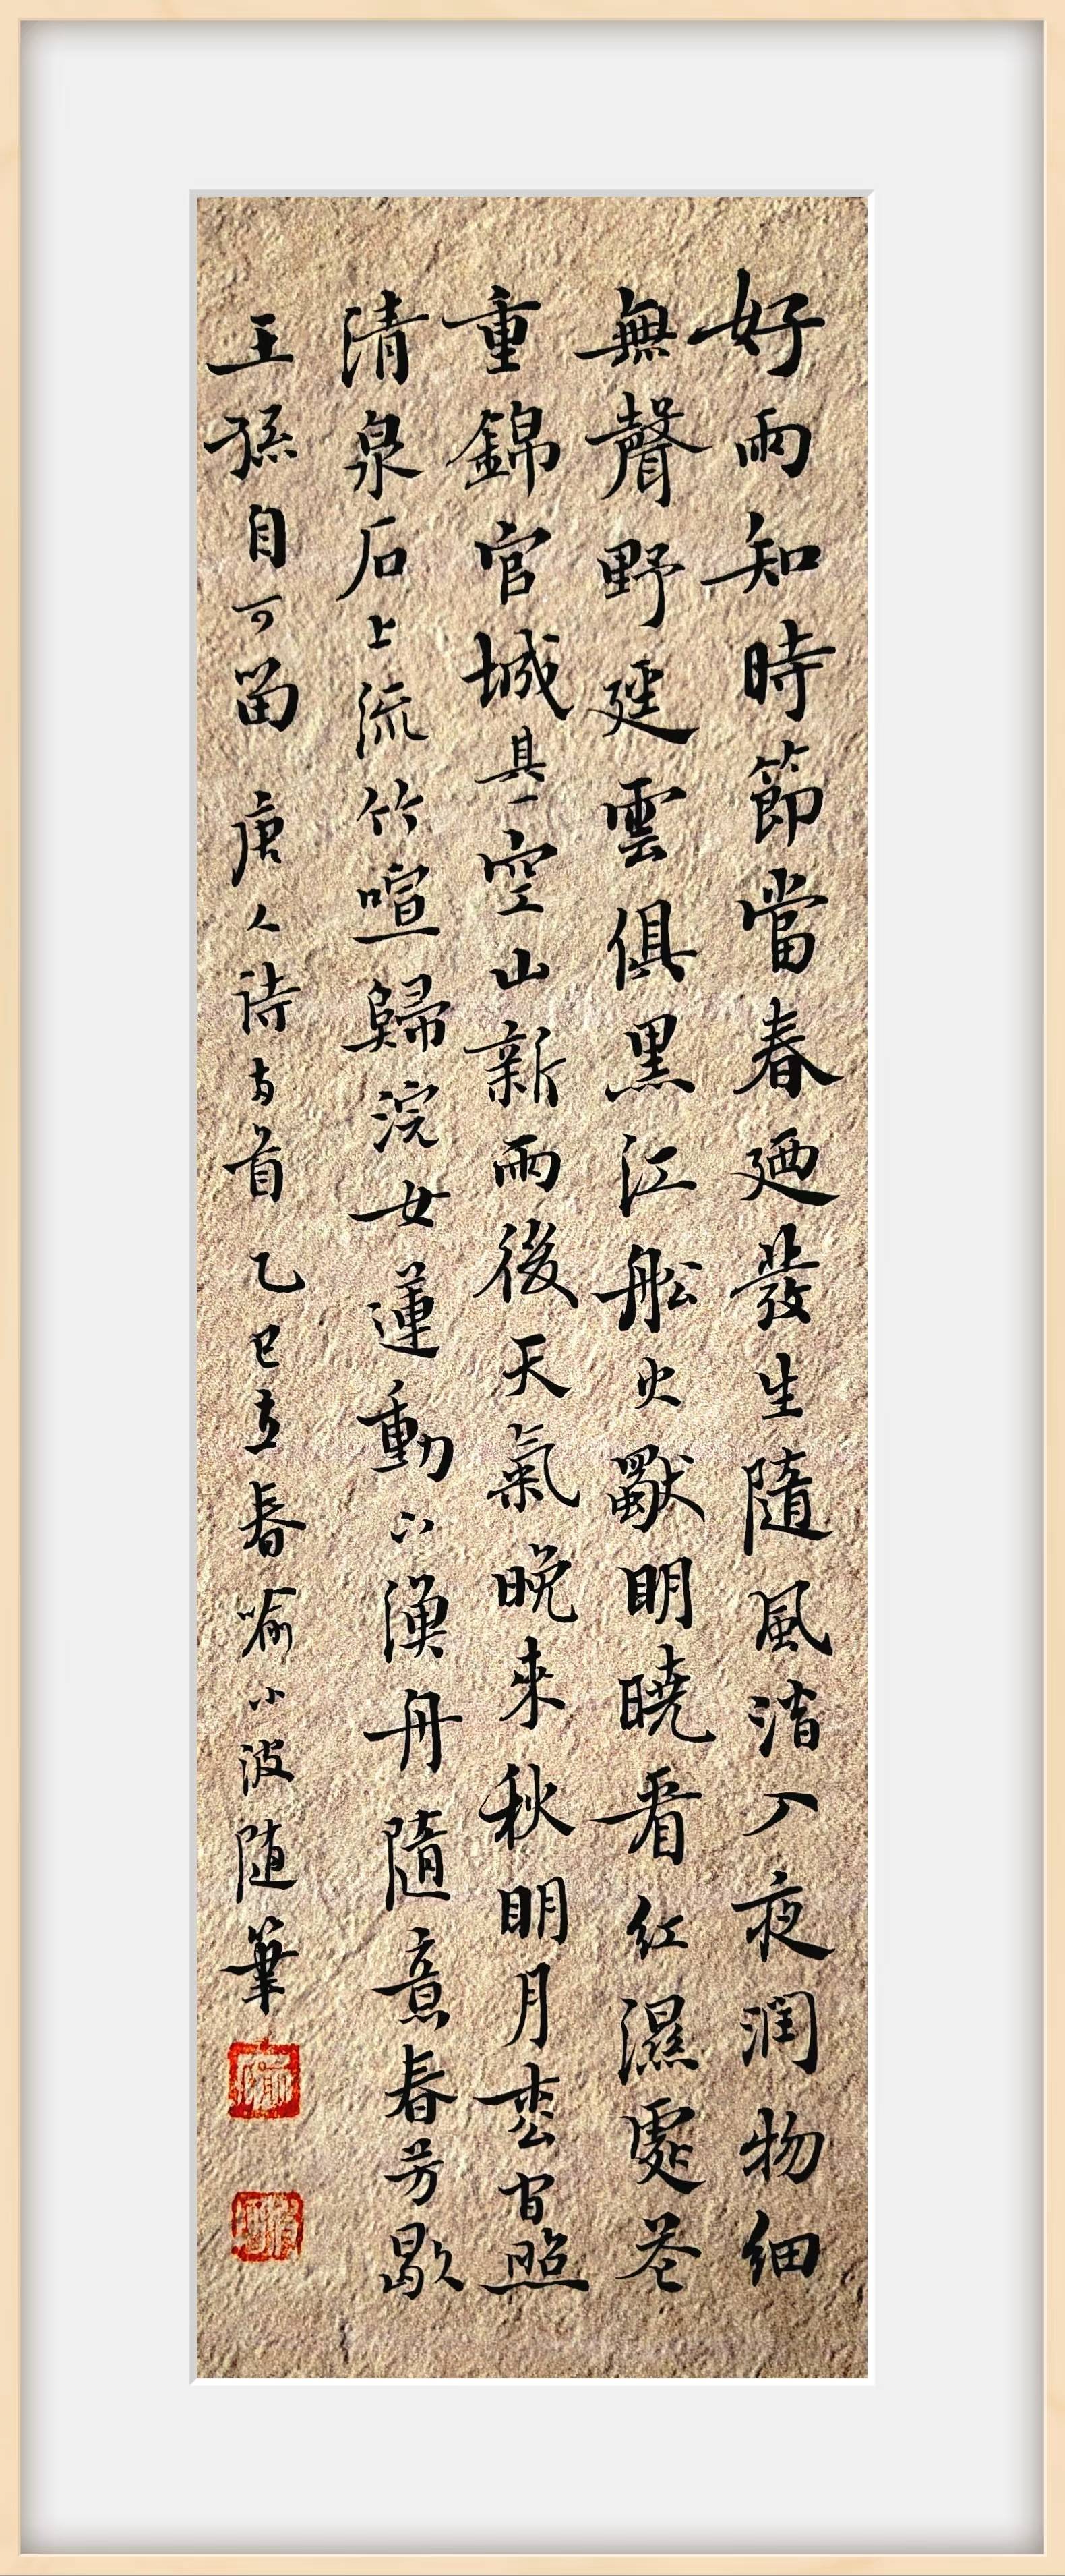 好雨知時節當春廼發生隨風潛入夜潤物細
無聲野逕雲俱黑江船火獨明曉看紅濕處花
重錦官城其一空山新雨後天氣晚來秋明月松間照
清泉石上流竹喧歸浣女蓮動下漁舟隨意春芳歇
王孫自可留 唐人詩首 乙巳立春喻小波随筆